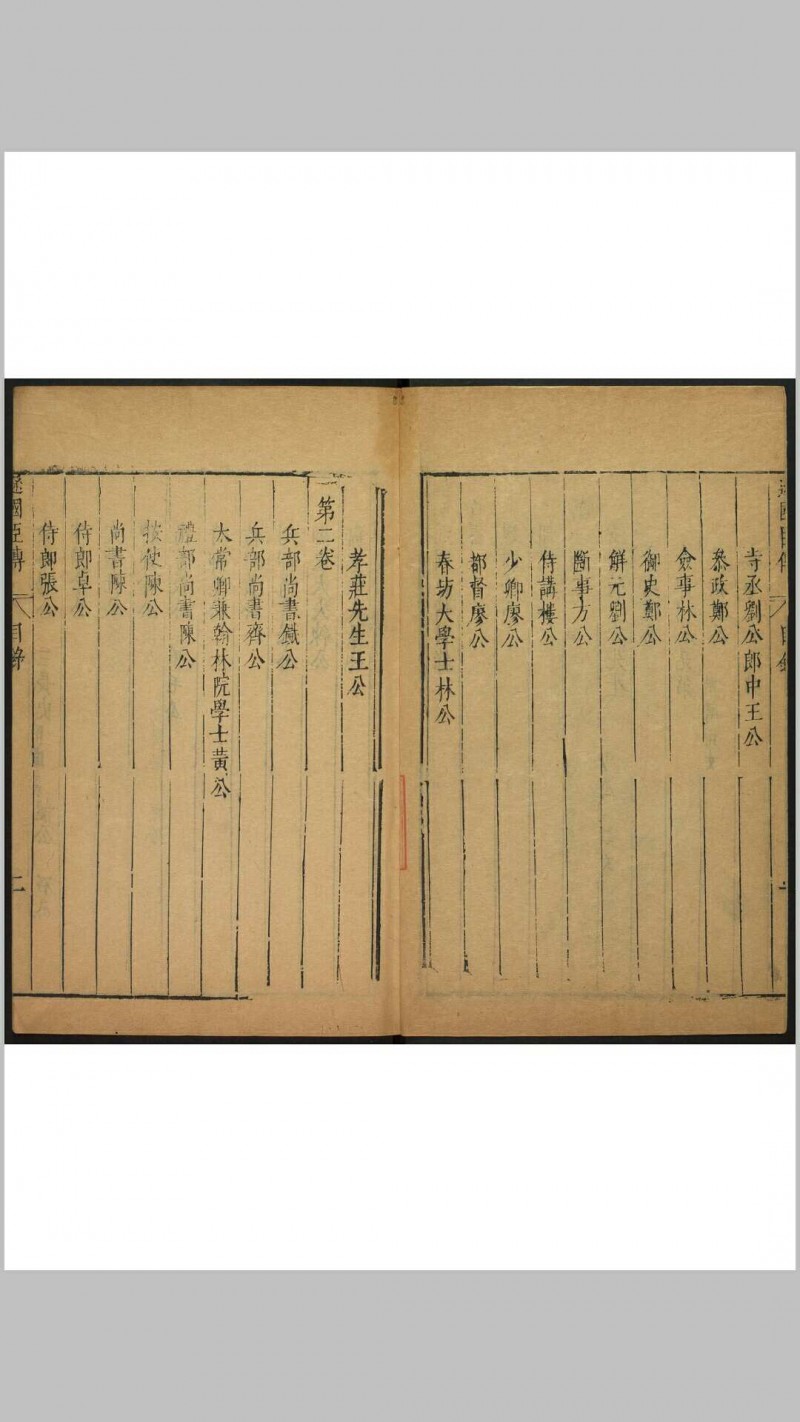 寺丞劉公郎中王公
叅政鄭公
僉事林公
御史鄭公
解元劉公
斷事方公
侍講樓公
少卿廖公
都督廖公
春坊大學士林公
孝莊先生王公
第二卷
兵部尚書鐵公
兵部尚書齊公
太常卿兼翰林院學士黃公
禮部尚書陳公
按使陳公
尚書陳公
侍郎卓公
侍郎張公
遜國臣傳 目錄 二